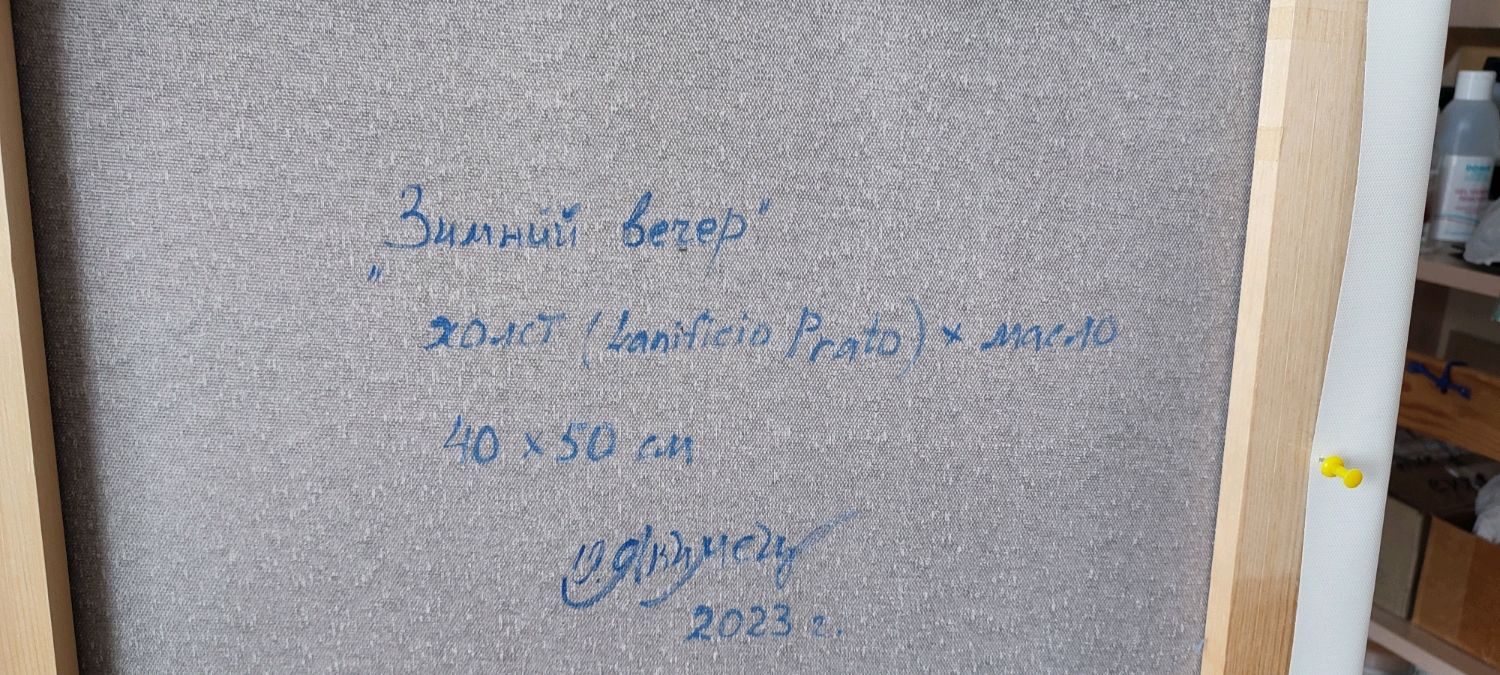 "Зимний вечер"
холст (Lanificio Prato) × масло
40 x 50 см
2023 г.